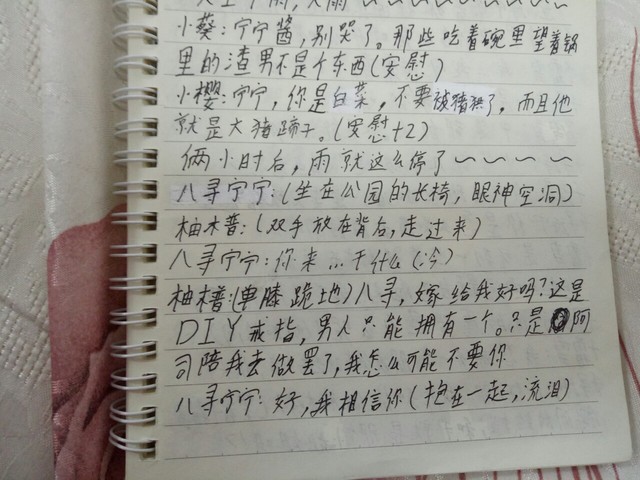 小葵:宁宁酱,别哭了。那些吃着碗里望着锅
里的渣男不是个东西(安慰)
小樱:宁宁,你是白菜,不要被猪拱了,而且他
就是大猪蹄子。(安慰+2)
俩小时后,雨就这么停了~~~~
八寻宁宁:(坐在公园的长椅,眼神空洞)
柚木普:(双手放在背后,走过来)
八寻宁宁:你来...干什么(冷)
柚木普(单膝跪地)八寻,嫁给我好吗?这是
DIY戒指,男人只能拥有一个。只是阿
司陪我去做罢了,我怎么可能不要你
八寻宁宁:好,我相信你(抱在一起,流泪)